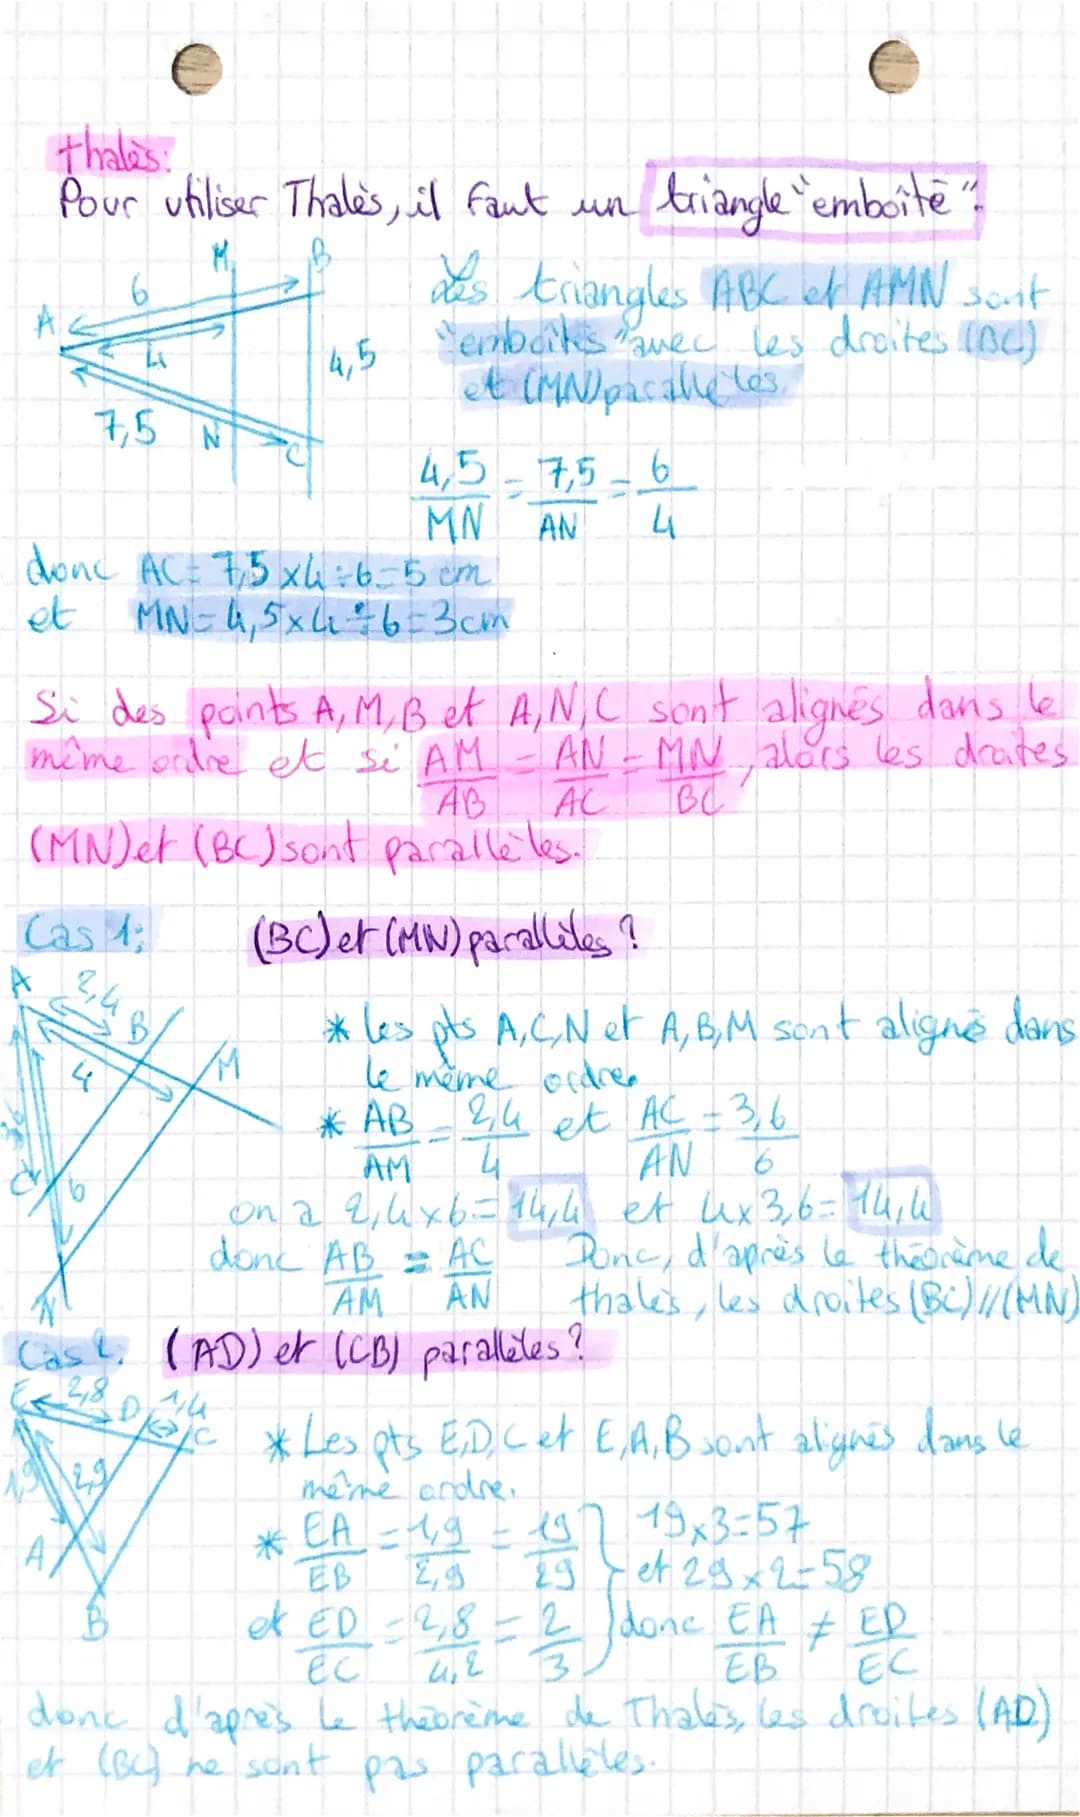 thalès:
Pour utiliser Thalès, il faut un triangle "emboîté".
M B
6
A
4
4,5
7,5 N
C
Les triangles ABC et AMN sont
"emboîtés" avec les droites (BC)
et (MN) parallèles.
4,5/MN = 7,5/AN = 6/4
donc AC = 7,5 x 4 ÷ 6 = 5 cm
et MN = 4,5 x 4 ÷ 6 = 3 cm
Si des points A, M, B et A, N, C sont alignés dans le
même ordre et si AM/AB = AN/AC = MN/BC, alors les droites
(MN) et (BC) sont parallèles.
Cas 1: (BC) et (MN) parallèles ?
A 2,4
B
4 M
C 6
N
* les pts A, C, N et A, B, M sont alignés dans
le même ordre.
* AB/AM = 2,4/4 et AC/AN = 3,6/6
on a 2,4 x 6 = 14,4 et 4 x 3,6 = 14,4
donc AB/AM = AC/AN Donc, d'après le théorème de
thalès, les droites (BC) // (MN)
Cas 2. (AD) et (CB) parallèles ?
E 2,8 D 1,4
C
1,9 2,9
A
B
* Les pts E, D, C et E, A, B sont alignés dans le
même ordre.
* EA/EB = 1,9/2,9 = 19/29 19 x 3 = 57
et 29 x 2 = 58
et ED/EC = 2,8/4,2 = 2/3 donc EA/EB ≠ ED/EC
donc d'après le théorème de Thalès, les droites (AD)
et (BC) ne sont pas parallèles.